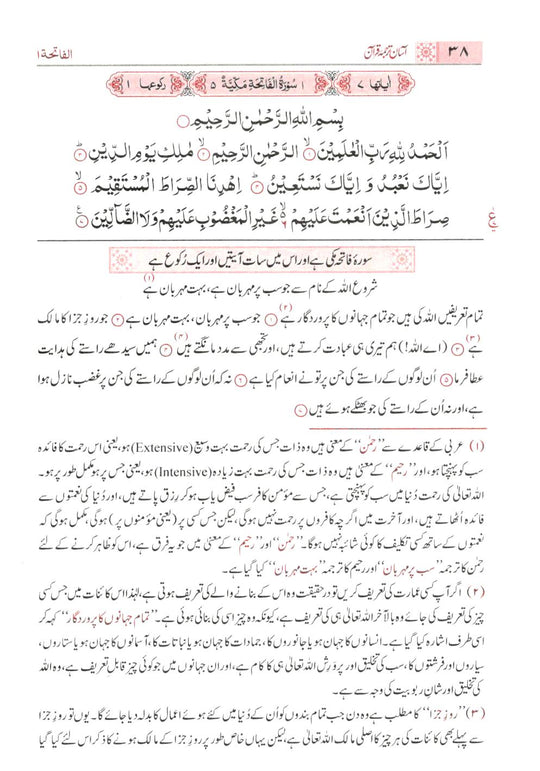 الفاتحۃ ۱ آسان ترجمۂ قرآن ۳۸
اٰیاتہا ۷ ۱ سُوْرَةُ الْفَاتِحَةِ مَكِّيَّةٌ ۵ رکوعہا ۱
بِسْمِ اللهِ الرَّحْمٰنِ الرَّحِيْمِ
اَلْحَمْدُ لِلّٰهِ رَبِّ الْعٰلَمِيْنَ ۱ الرَّحْمٰنِ الرَّحِيْمِ ۲ مٰلِكِ يَوْمِ الدِّيْنِ ۳
اِيَّاكَ نَعْبُدُ وَ اِيَّاكَ نَسْتَعِيْنُ ۴ اِهْدِنَا الصِّرَاطَ الْمُسْتَقِيْمَ ۵
صِرَاطَ الَّذِيْنَ اَنْعَمْتَ عَلَيْهِمْ ۶ غَيْرِ الْمَغْضُوْبِ عَلَيْهِمْ وَلَا الضَّآلِّيْنَ ۷
سورۂ فاتحہ مکی ہے اور اس میں سات آیتیں اور ایک رُکوع ہے
شروع اللہ کے نام سے جو سب پر مہربان ہے، بہت مہربان ہے (۱)
تمام تعریفیں اللہ کی ہیں جو تمام جہانوں کا پروردگار ہے (۲) ۱ جو سب پر مہربان، بہت مہربان ہے ۲ جو روزِ جزا کا مالک
ہے (۳) ۳ (اے اللہ!) ہم تیری ہی عبادت کرتے ہیں، اور تجھی سے مدد مانگتے ہیں (۴) ۴ ہمیں سیدھے راستے کی ہدایت
عطا فرما ۵ اُن لوگوں کے راستے کی جن پر تو نے انعام کیا ہے ۶ نہ کہ اُن لوگوں کے راستے کی جن پر غضب نازل ہوا
ہے، اور نہ اُن کے راستے کی جو بھٹکے ہوئے ہیں ۷
(۱) عربی کے قاعدے سے ”رحمٰن“ کے معنیٰ ہیں وہ ذات جس کی رحمت بہت وسیع (Extensive) ہو، یعنی اس رحمت کا فائدہ
سب کو پہنچتا ہو، اور ”رحیم“ کے معنیٰ ہیں وہ ذات جس کی رحمت بہت زیادہ (Intensive) ہو، یعنی جس پر ہو مکمل طور پر ہو۔
اللہ تعالیٰ کی رحمت دُنیا میں سب کو پہنچتی ہے، جس سے مؤمن کافر سب فیض یاب ہو کر رزق پاتے ہیں، اور دُنیا کی نعمتوں سے
فائدہ اُٹھاتے ہیں، اور آخرت میں اگرچہ کافروں پر رحمت نہیں ہوگی، لیکن جس کسی پر (یعنی مؤمنوں پر) ہوگی، مکمل ہوگی کہ
نعمتوں کے ساتھ کسی تکلیف کا کوئی شائبہ نہیں ہوگا۔ ”رحمٰن“ اور ”رحیم“ کے معنیٰ میں جو یہ فرق ہے، اس کو ظاہر کرنے کے لئے
رحمٰن کا ترجمہ ”سب پر مہربان“ اور رحیم کا ترجمہ ”بہت مہربان“ کیا گیا ہے۔
(۲) اگر آپ کسی عمارت کی تعریف کریں تو درحقیقت وہ اس کے بنانے والے کی تعریف ہوتی ہے، لہٰذا اس کائنات میں جس کسی
چیز کی تعریف کی جائے وہ بالآخر اللہ تعالیٰ ہی کی تعریف ہے، کیونکہ وہ چیز اسی کی بنائی ہوئی ہے۔ ”تمام جہانوں کا پروردگار“ کہہ کر
اسی طرف اشارہ کیا گیا ہے۔ انسانوں کا جہان ہو یا جانوروں کا، جمادات کا جہان ہو یا نباتات کا، آسمانوں کا جہان ہو یا ستاروں،
سیاروں اور فرشتوں کا، سب کی تخلیق اور پروَرِش اللہ تعالیٰ ہی کا کام ہے، اور ان جہانوں میں جو کوئی چیز قابلِ تعریف ہے، وہ اللہ
کی تخلیق اور شانِ ربوبیت کی وجہ سے ہے۔
(۳) ”روزِ جزا“ کا مطلب ہے وہ دن جب تمام بندوں کو اُن کے دُنیا میں کئے ہوئے اعمال کا بدلہ دیا جائے گا۔ یوں تو روزِ جزا
سے پہلے بھی کائنات کی ہر چیز کا اصلی مالک اللہ تعالیٰ ہے، لیکن یہاں خاص طور پر روزِ جزا کے مالک ہونے کا ذکر اس لئے کیا گیا